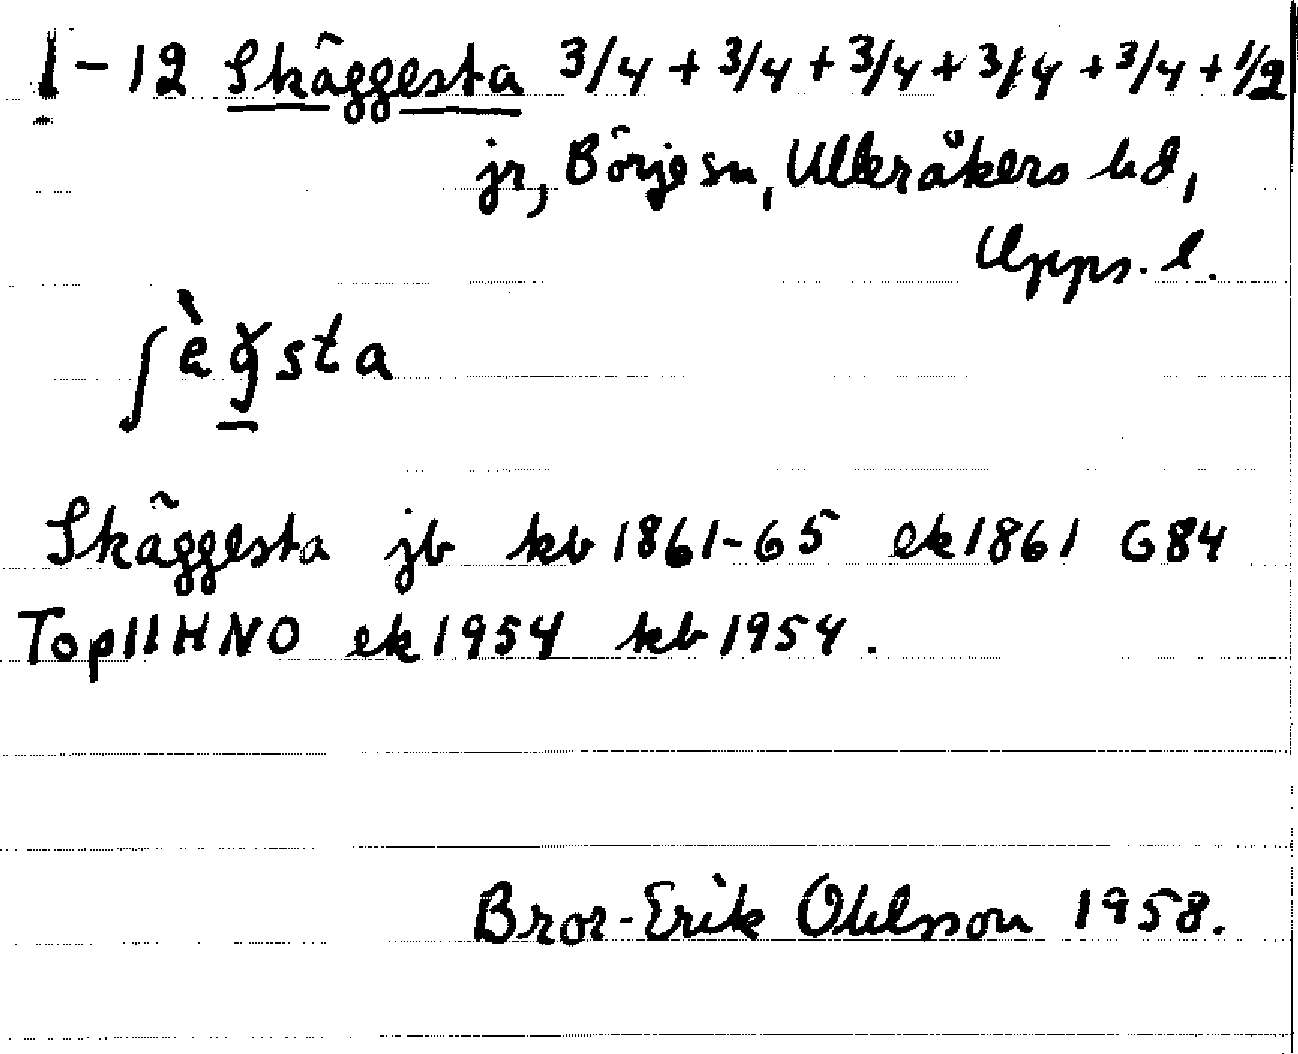 1-12 Skäggesta 3/4 + 3/4 + 3/4 + 3/4 + 3/4 + 1/2
jr, Börje sn, Ulleråkers hd,
Upps. l.
ʃègsta
Skäggesta jb kb 1861-65 ek 1861 G84
Top11HNO ek 1954 kb 1954.
Bror-Erik Ohlsson 1958.